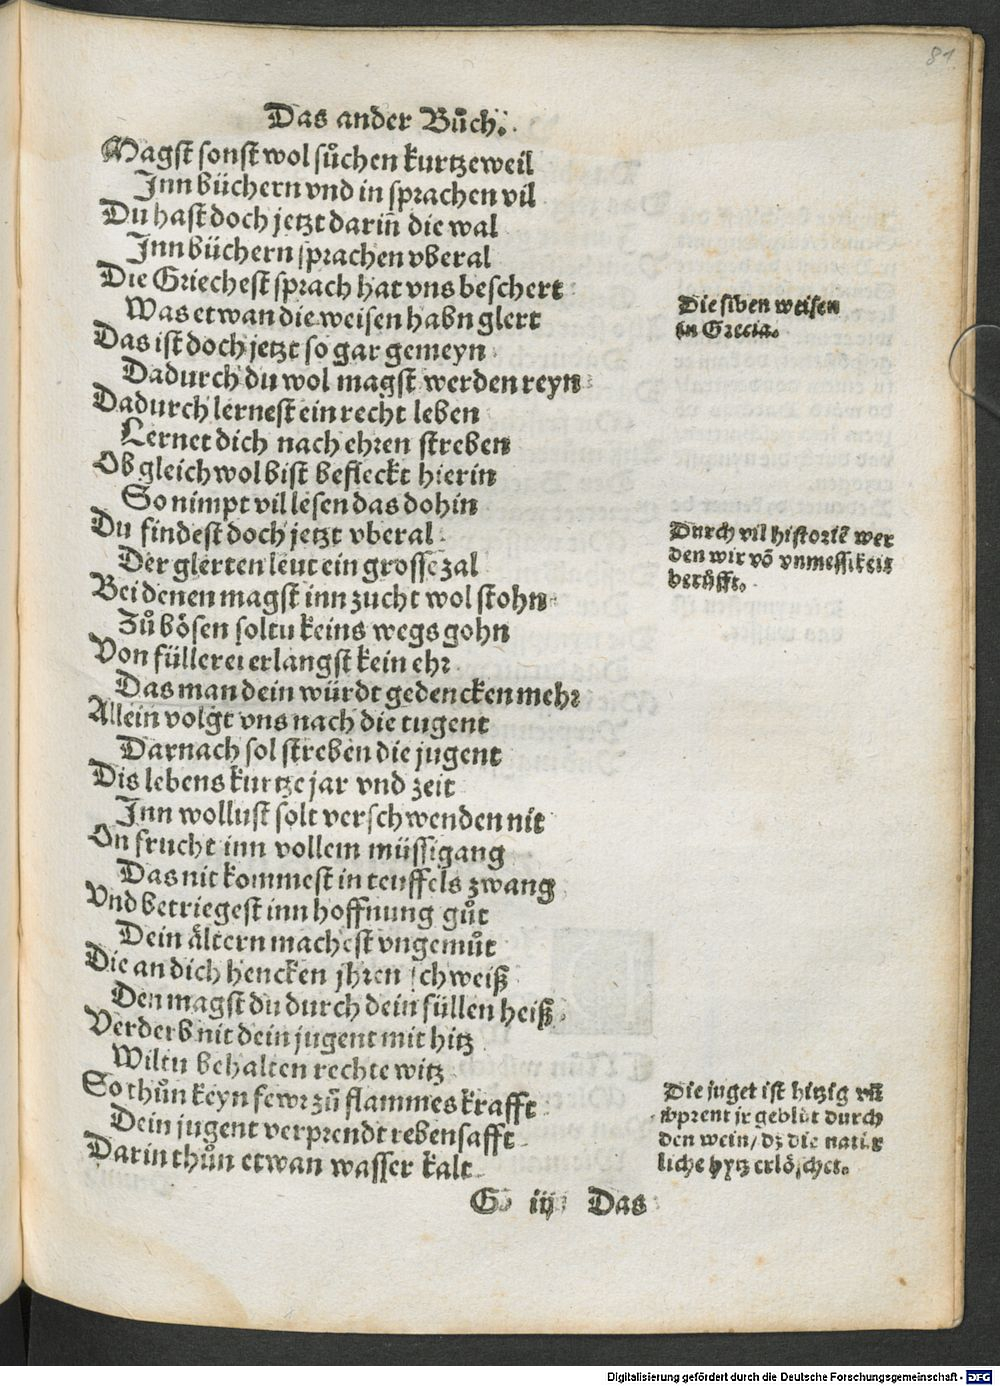 81
Das ander Bůch.
Magst sonst wol sůchen kurtzeweil
Inn büchern vnd in sprachen vil
Du hast doch jetzt darin̄ die wal
Inn büchern sprachen vberal
Die Griechest sprach hat vns beschert
Was etwan die weisen habn glert
Das ist doch jetzt so gar gemeyn
Dadurch du wol magst werden reyn
Dadurch lernest ein recht leben
Lernet dich nach ehren streben
Ob gleich wol bist befleckt hierin
So nimpt vil lesen das dohin
Du findest doch jetzt vberal
Der glerten leut ein grosse zal
Bei denen magst inn zucht wol stohn
Zů bösen soltu keins wegs gohn
Von füllerei erlangst kein ehr
Das man dein würdt gedencken mehr
Allein volgt vns nach die tugent
Darnach sol streben die jugent
Dis lebens kurtze jar vnd zeit
Inn wollust solt verschwenden nit
On frucht inn vollem müssigang
Das nit kommest in teuffels zwang
Vnd betriegest inn hoffnung gůt
Dein ältern machest vngemůt
Die an dich hencken jhren schweiß
Den magst du durch dein füllen heiß
Verderb nit dein jugent mit hitz
Wiltu behalten rechte witz
So thůn keyn fewr zů flammes krafft
Dein jugent verprendt rebensafft
Darin thůn etwan wasser kalt
G iij Das
Die siben weisen
in Grecia.
Durch vil historiē wer
den wir vō vnmessikeit
berůfft.
Die juget ist hitzig vn̄
wprent jr geblůt durch
den wein/ dz die natür
liche hytz erlöschet.
Digitalisierung gefördert durch die Deutsche Forschungsgemeinschaft - DFG